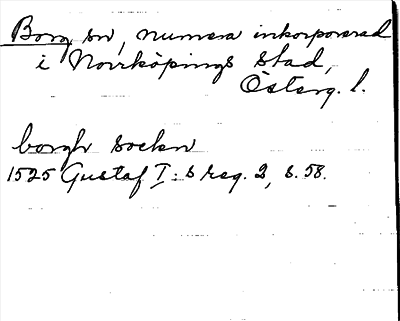 Borg sn, numera inkorporerad
i Norrköpings stad,
Österg. l.
borgh sockn
1525 Gustaf I:s reg. 2, s. 58.